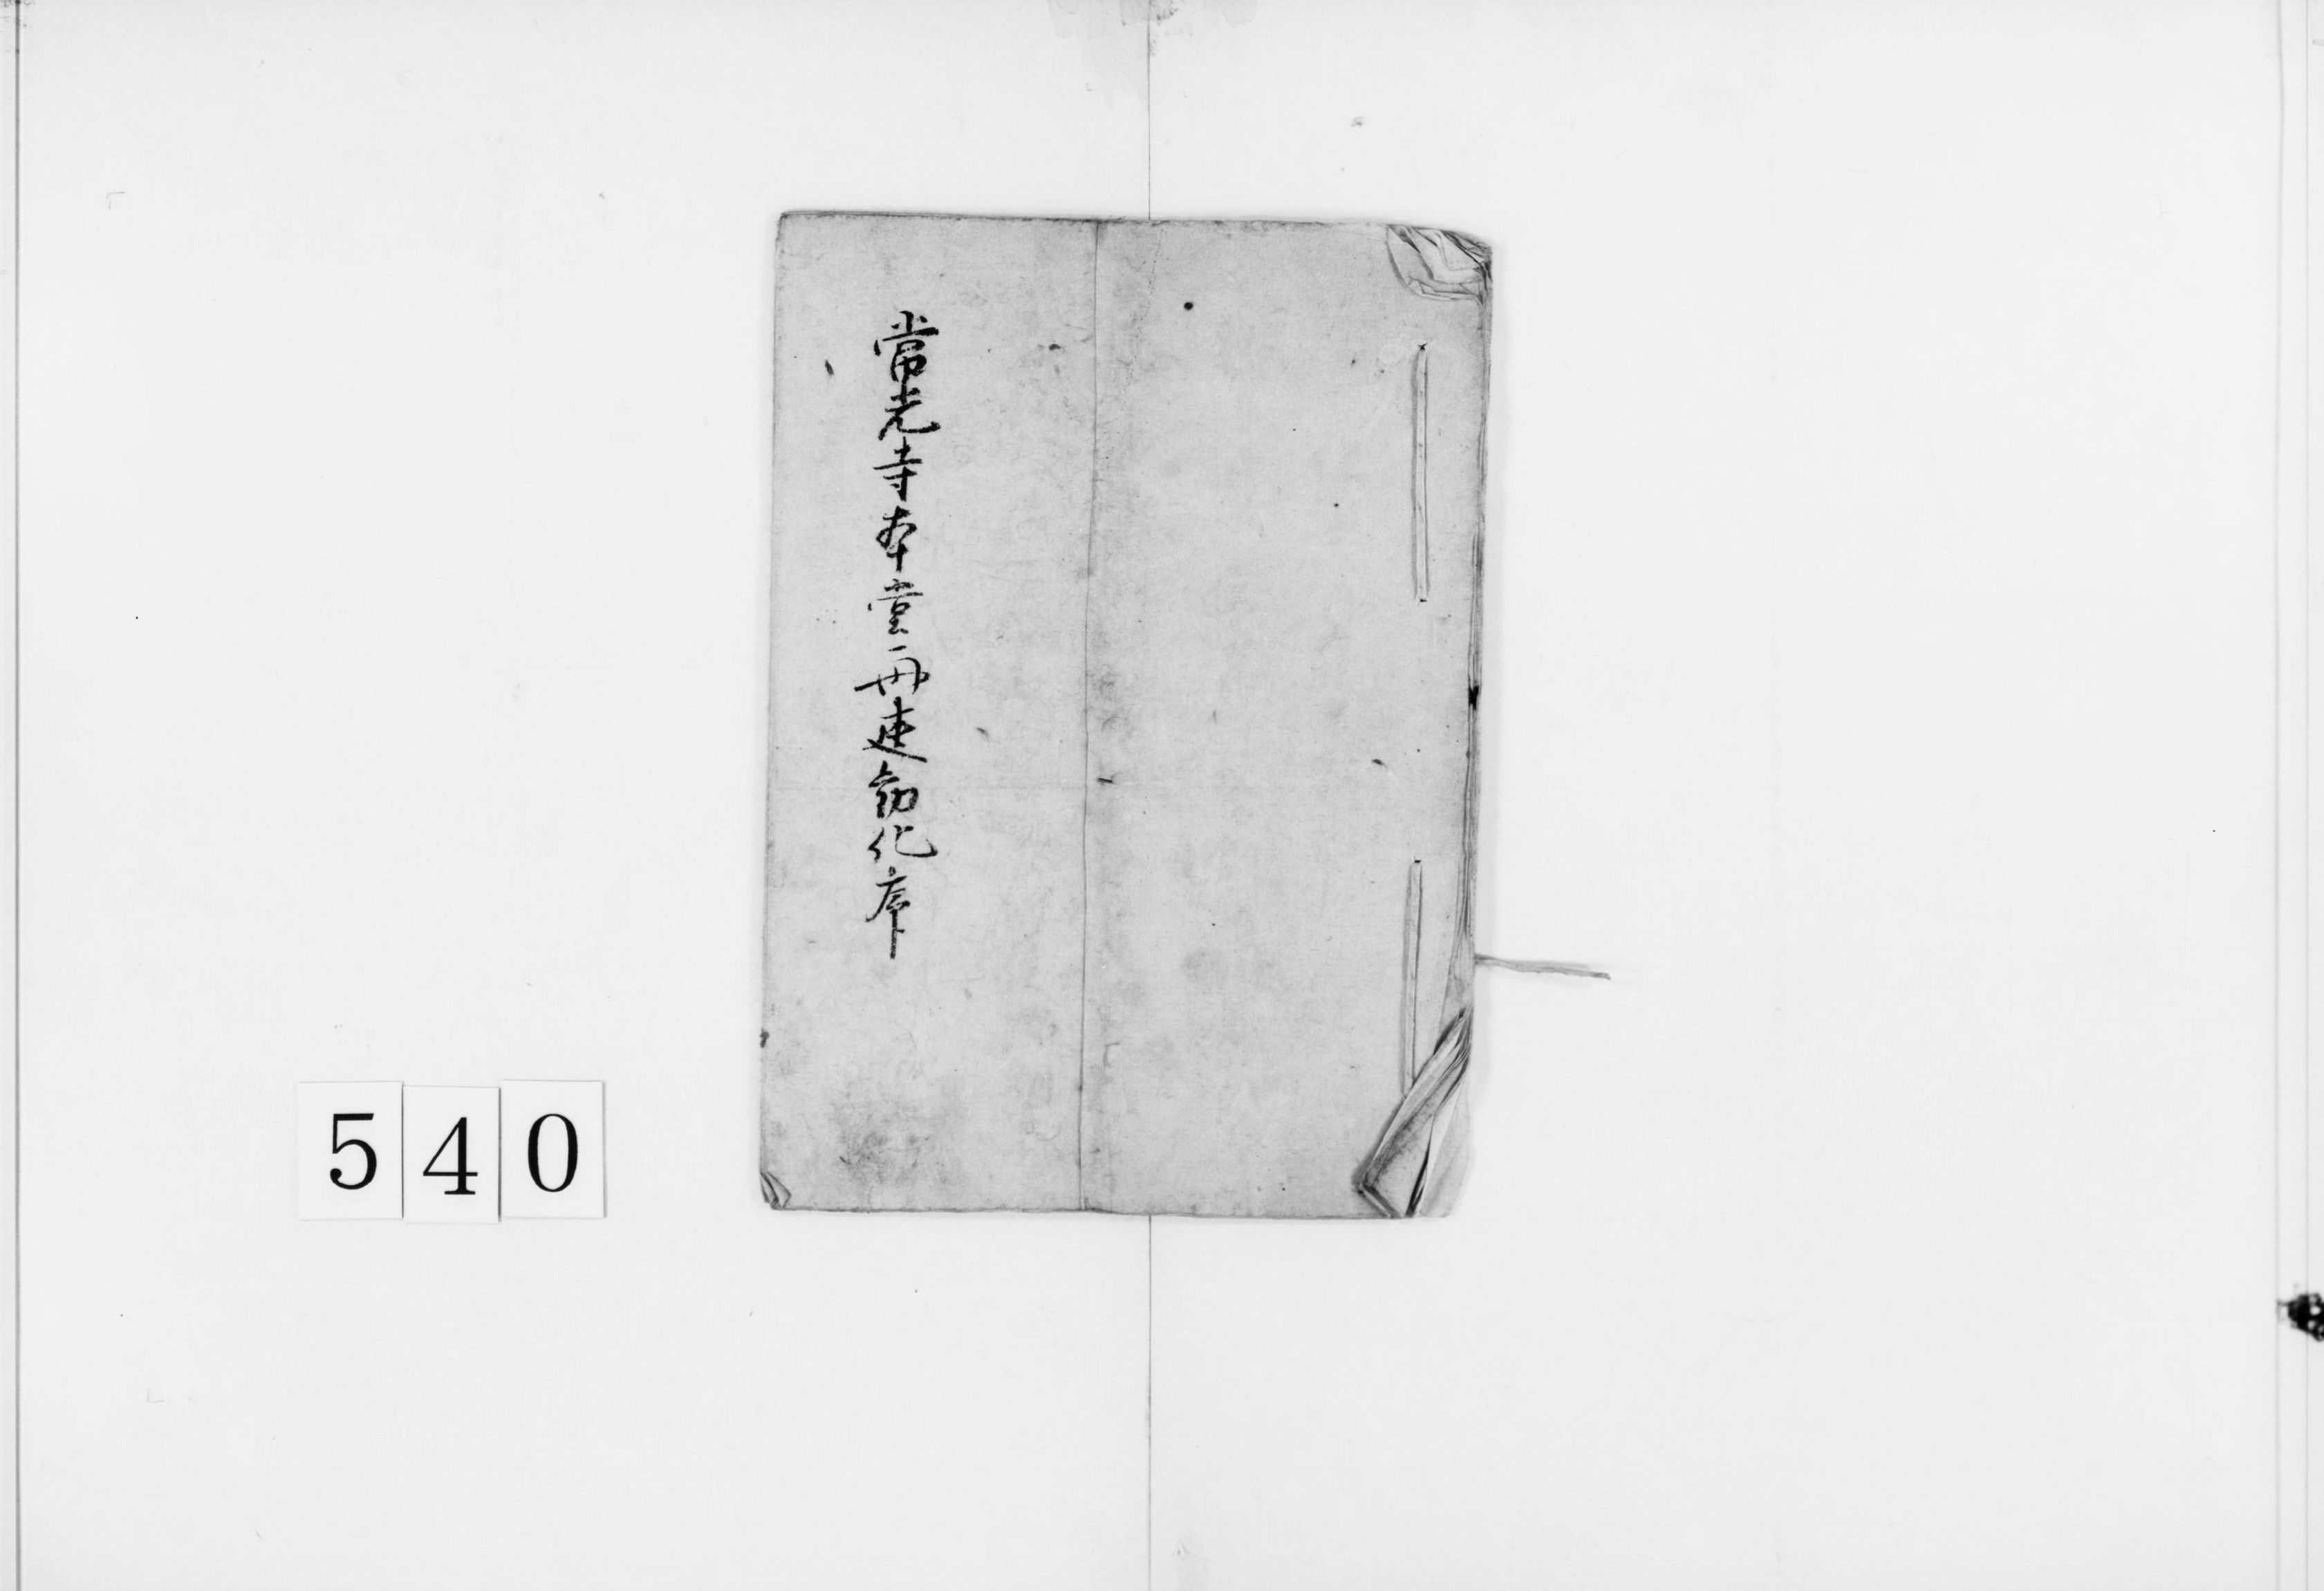 常光寺本堂再建勧化序
540